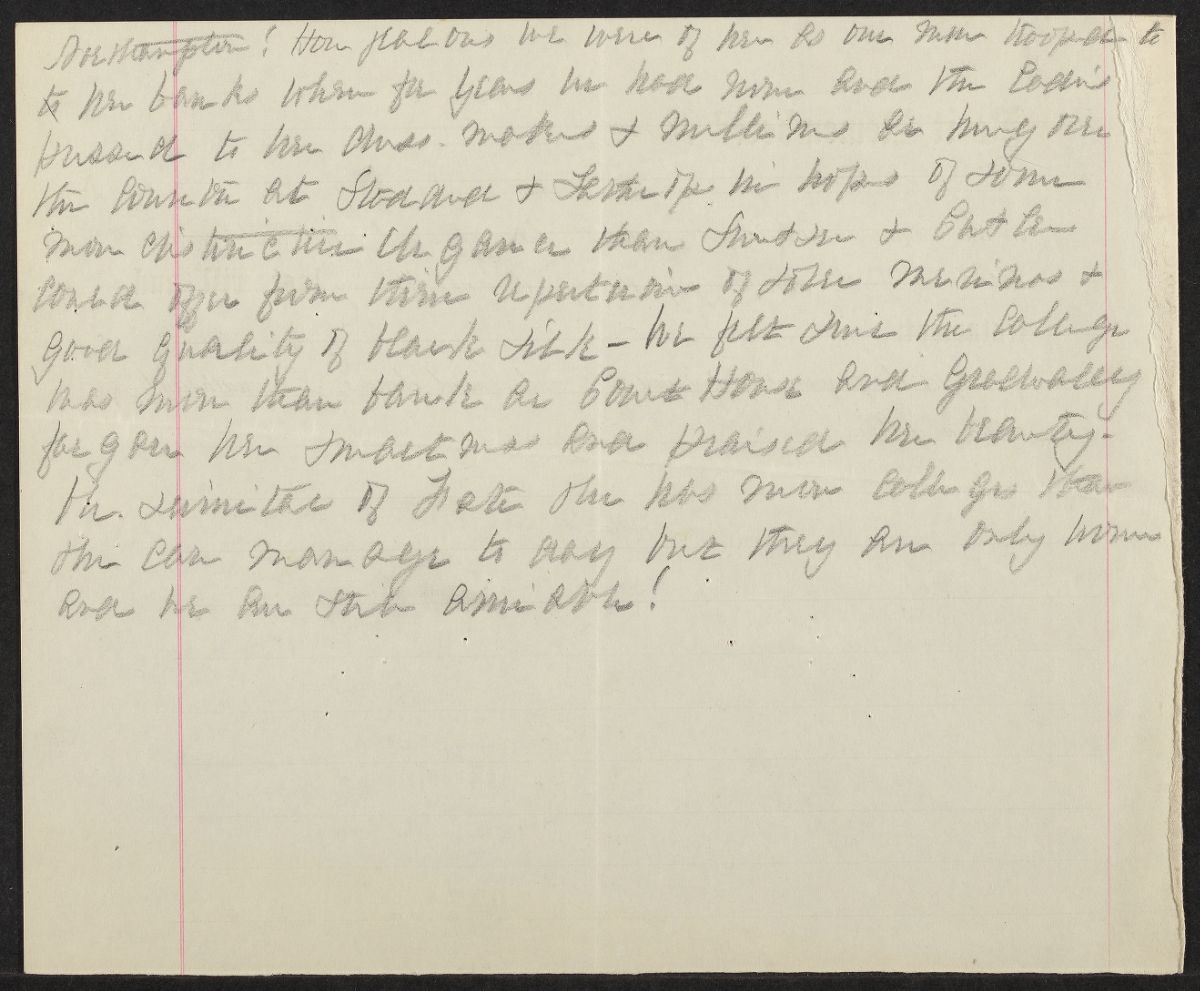 Northampton! How jealous we were of her as our men trooped to
to her banks when for years we had none and the Ladies
pressed to her dress-makers & milliners or hung over
the counter at Stoddard & Lathrop in hopes of some
more distinctive elegance than Sweetser & Cutler
could offer from their repertoire of sober merinos &
good quality of black silk - We felt sure the College
was more than bank or Court House and gradually
forgave her smartness and praised her beauty -
the. of Fate she has more colleges than
she can manage to day but they are only
and we are still amicable!